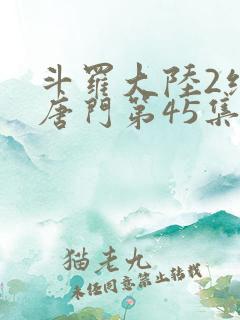 斗羅大陸2
唐門第45集
猫老九
未經同意禁止轉載